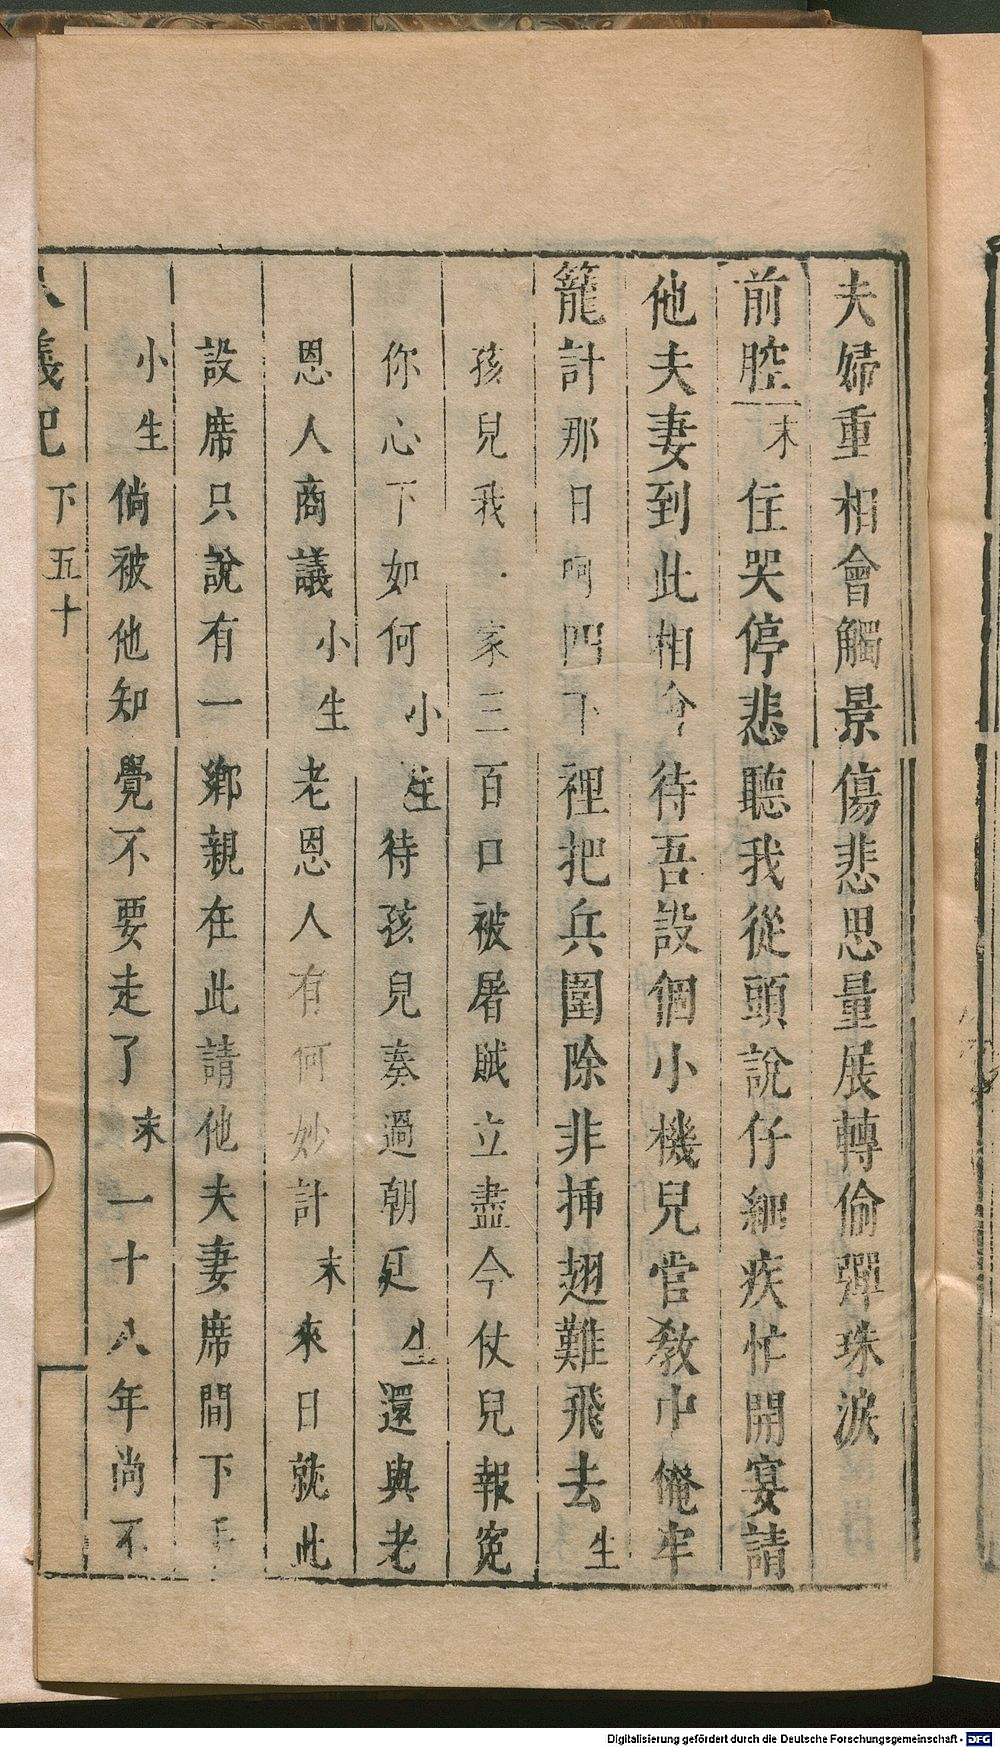 夫婦重相會觸景傷悲思量展轉偷彈珠淚
前腔末住哭停悲聽我從頭說仔細疾忙開宴請
他夫妻到此相會待吾設個小機兒管教中俺牢
籠計那日啊四下裡把兵圍除非揷翅難飛去生
孩兒我家三百口被屠戝立盡今仗兒報寃
你心下如何小生待孩兒奏過朝廷生還與老
恩人商議小生老恩人有何妙計末來日就此
設席只說有一鄉親在此請他夫妻席間下手
小生倘被他知覺不要走了末一十八年尚不
八義記 下 五十
Digitalisierung gefördert durch die Deutsche Forschungsgemeinschaft - DFG